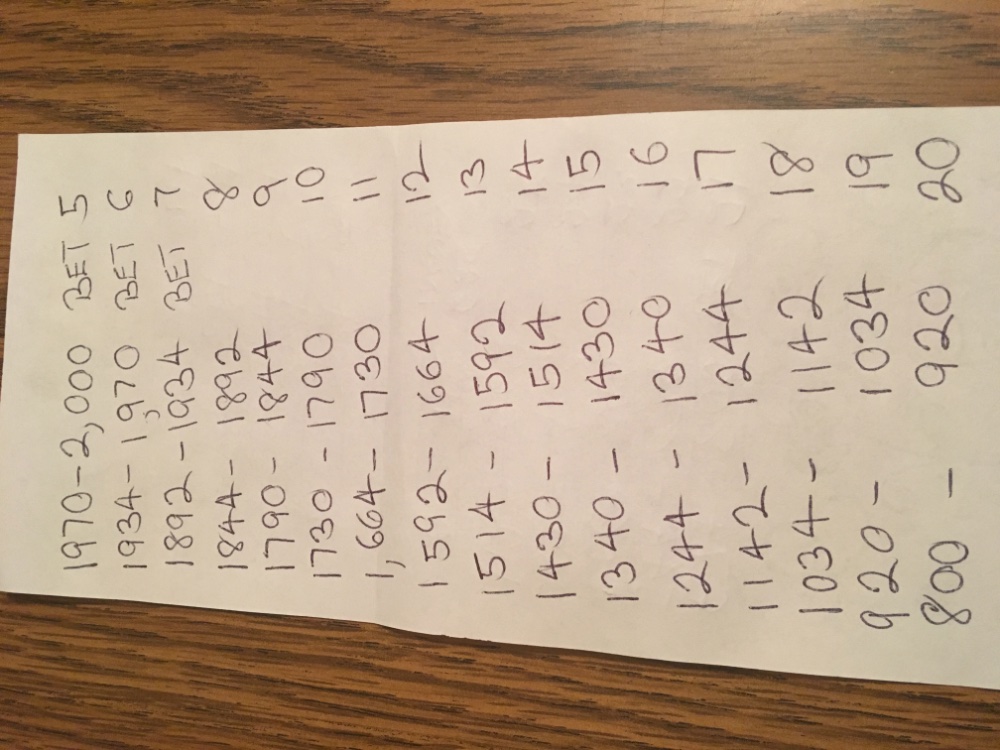 1970-2,000 BET 5
1934-1,970 BET 6
1892-1934 BET 7
1844- 1892 8
1790- 1844 9
1730 -1790 10
1,664- 1730 11
1592- 1664 12
1514 - 1592 13
1430 - 1514 14
1340 - 1430 15
1244 - 1340 16
1142- 1244 17
1034 - 1142 18
920 - 1034 19
800 - 920 20